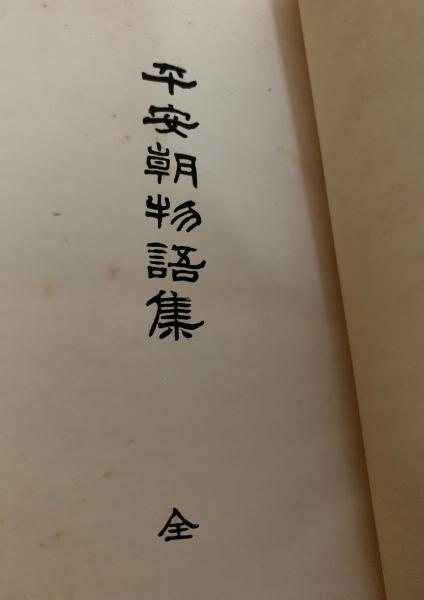 平安朝物語集
全